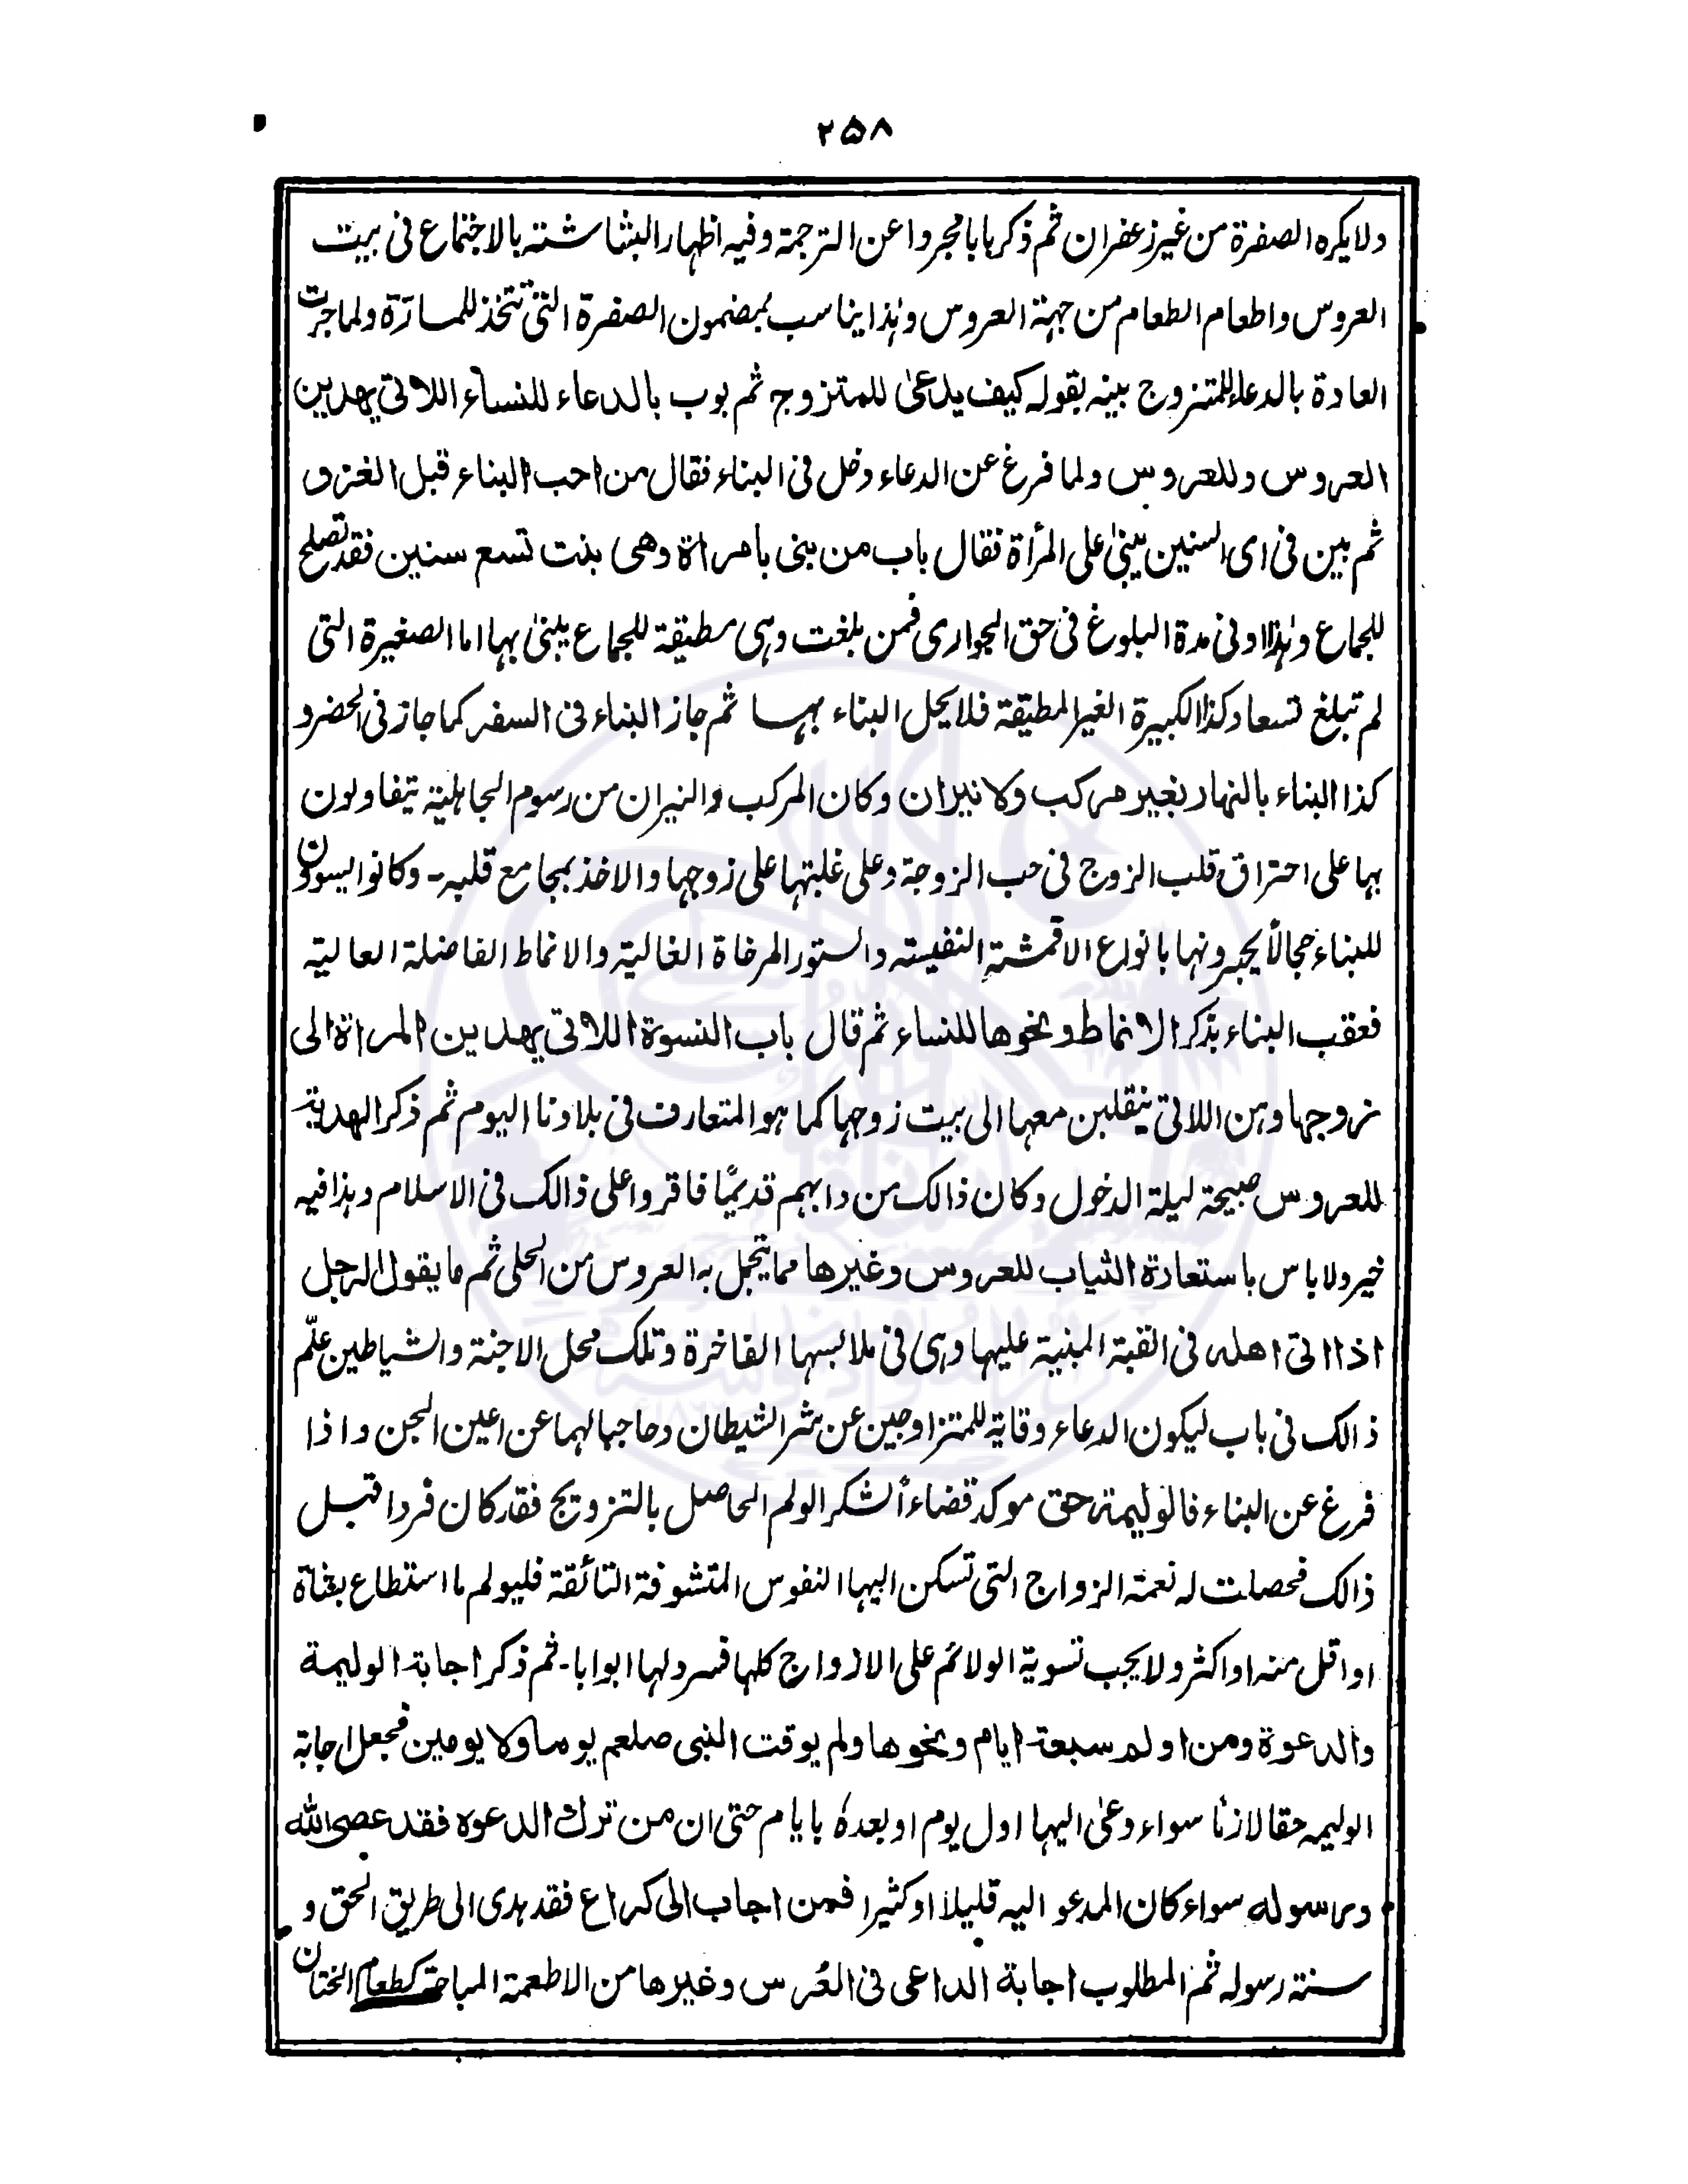 ٢٥٨
ولا يكره الصفرة من غير زعفران ثم ذكر بابا مجروا عن الترجمة وفيه اظهار البشاشة بالاجتماع فى بيت
العروس واطعام الطعام من جهة العروس وهذا يناسب بمضمون الصفرة التى تتخذ للمسارة ولما جرت
العادة بالدعاء للمتزوج بينه بقوله كيف يدعى للمتزوج ثم بوب بالدعاء للنساء اللاتى يهدين
العروس وللعروس ولما فرغ عن الدعاء دخل فى البناء فقال من احب البناء قبل الغزو
ثم بين فى اى السنين يبنى على المرأة فقال باب من بنى بامراة وهى بنت تسع سنين فقد تصلح
للجماع وهذا ادنى مدة البلوغ فى حق الجوارى فمن بلغت وهى مطيقة للجماع يبنى بها اما الصغيرة التى
لم تبلغ تسعا وكذا الكبيرة الغير المطيقة فلا يحل البناء بها ثم جاز البناء فى السفر كما جاز فى الحضر و
كذا البناء بالنهار بغير مركب ولا نيران وكان المركب والنيران من رسوم الجاهلية يتفاولون
بها على احتراق قلب الزوج فى حب الزوجة وعلى غلبتها على زوجها والاخذ بمجامع قلبه - وكانوا يسوون
للبناء حجالاً يحبرونها بانواع الاقمشة النفيسة والستور المرخاة الغالية والانماط الفاضلة العالية
فعقب البناء بذكر الانماط ونحوها للنساء ثم قال باب النسوة اللاتى يهدين المراة الى
زوجها وهن اللاتى ينقلبن معها الى بيت زوجها كما هو المتعارف فى بلادنا اليوم ثم ذكر الهدية
للعروس صبيحة ليلة الدخول وكان ذالك من دابهم قديمًا فاقروا على ذالك فى الاسلام وهذا فيه
خير ولا باس باستعارة الثياب للعروس وغيرها مما يتجمل به العروس من الحلى ثم ما يقول الرجل
اذا اتى اهله فى القبة المبنية عليها وهى فى ملابسها الفاخرة وتلك محل الاجنة والشياطين علّم
ذالك فى باب ليكون الدعاء وقاية للمتزاوجين عن شر الشيطان وحاجبا لهما عن اعين الجن واذا
فرغ عن البناء فالوليمة حق موكد قضاءً الشكر الولم الحاصل بالتزويج فقد كان فردا قبل
ذالك فحصلت له نعمة الزواج التى تسكن اليها النفوس المتشوفة التائقة فليولم ما استطاع بشاة
او اقل منه او اكثر ولا يجب تسوية الولائم على الازواج كلها فسرد لها ابوابا - ثم ذكر اجابة الوليمة
والدعوة ومن اولم سبعة ايام ونحوها ولم يوقت النبى صلعم يوما ولا يومين فجعل اجابة
الوليمه حقا لازمًا سواء دعى اليها اول يوم او بعده بايام حتى ان من ترك الدعوه فقد عصى الله
ورسوله سواء كان المدعو اليه قليلا او كثيرا فمن اجاب الى كراع فقد هدى الى طريق الحق و
سنة رسوله ثم المطلوب اجابة الداعى فى العُرس وغيرها من الاطعمة المباحة كطعام الختان